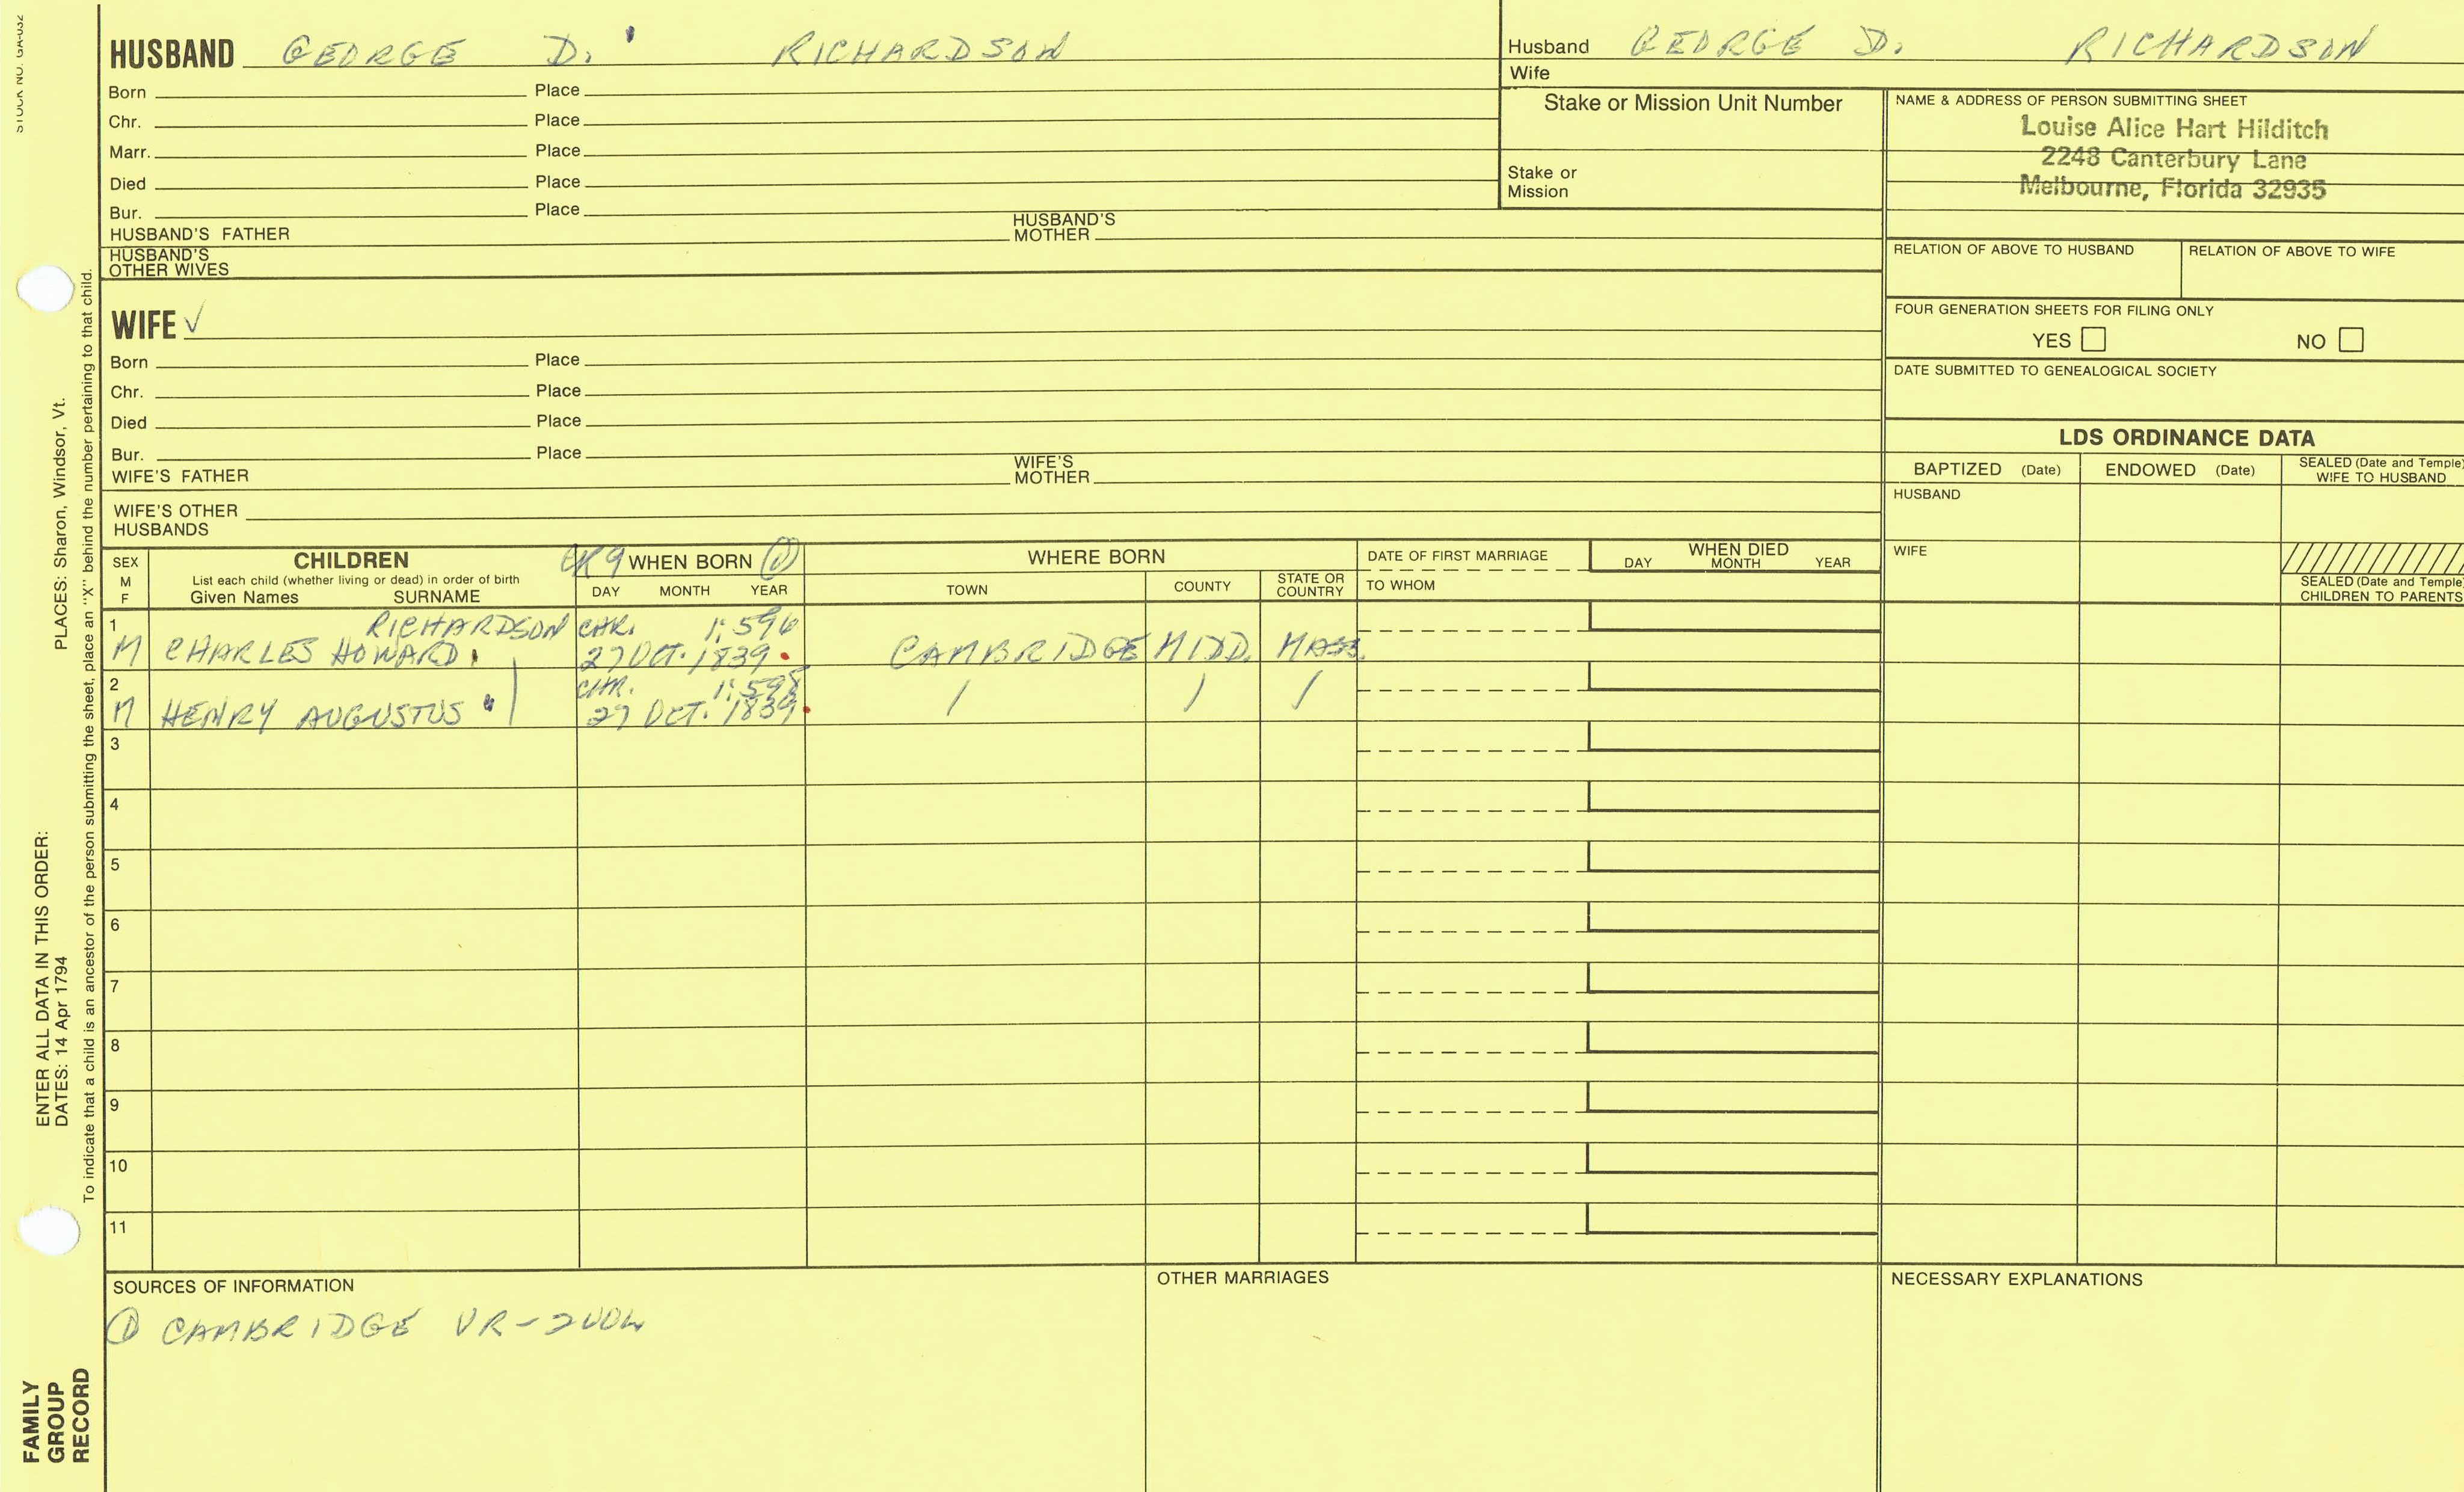 STOCK NO. GA-032
HUSBAND GEORGE D. RICHARDSON
Born Place
Chr. Place
Marr. Place
Died Place
Bur. Place
HUSBAND'S FATHER HUSBAND'S MOTHER
HUSBAND'S OTHER WIVES
WIFE ✓
Born Place
Chr. Place
Died Place
Bur. Place
WIFE'S FATHER WIFE'S MOTHER
WIFE'S OTHER HUSBANDS
Husband GEORGE D. RICHARDSON
Wife
Stake or Mission Unit Number
Stake or Mission
NAME & ADDRESS OF PERSON SUBMITTING SHEET
Louise Alice Hart Hilditch
2248 Canterbury Lane
Melbourne, Florida 32935
RELATION OF ABOVE TO HUSBAND RELATION OF ABOVE TO WIFE
FOUR GENERATION SHEETS FOR FILING ONLY
YES NO
DATE SUBMITTED TO GENEALOGICAL SOCIETY
LDS ORDINANCE DATA
BAPTIZED (Date) ENDOWED (Date) SEALED (Date and Temple) WIFE TO HUSBAND
HUSBAND
WIFE
SEALED (Date and Temple) CHILDREN TO PARENTS
SEX M F
CHILDREN
List each child (whether living or dead) in order of birth
Given Names SURNAME
WHEN BORN ①
DAY MONTH YEAR
WHERE BORN
TOWN COUNTY STATE OR COUNTRY
DATE OF FIRST MARRIAGE
TO WHOM
WHEN DIED
DAY MONTH YEAR
1 RICHARDSON CHR. 1:596
M CHARLES HOWARD 27 OCT. 1839 CAMBRIDGE MIDD. MASS.
2 CHR. 1:598
M HENRY AUGUSTUS 27 OCT. 1839 / / /
3
4
5
6
7
8
9
10
11
SOURCES OF INFORMATION
① CAMBRIDGE VR-2VOL
OTHER MARRIAGES
NECESSARY EXPLANATIONS
ENTER ALL DATA IN THIS ORDER:
DATES: 14 Apr 1794 PLACES: Sharon, Windsor, Vt.
To indicate that a child is an ancestor of the person submitting the sheet, place an "X" behind the number pertaining to that child.
FAMILY
GROUP
RECORD